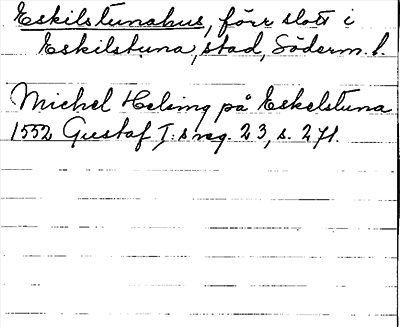 Eskilstunahus, förr slott i
Eskilstuna, stad, Söderm. l.
Michel Helsing på Eskelstuna
1552 Gustaf I:s reg. 23, s. 271.